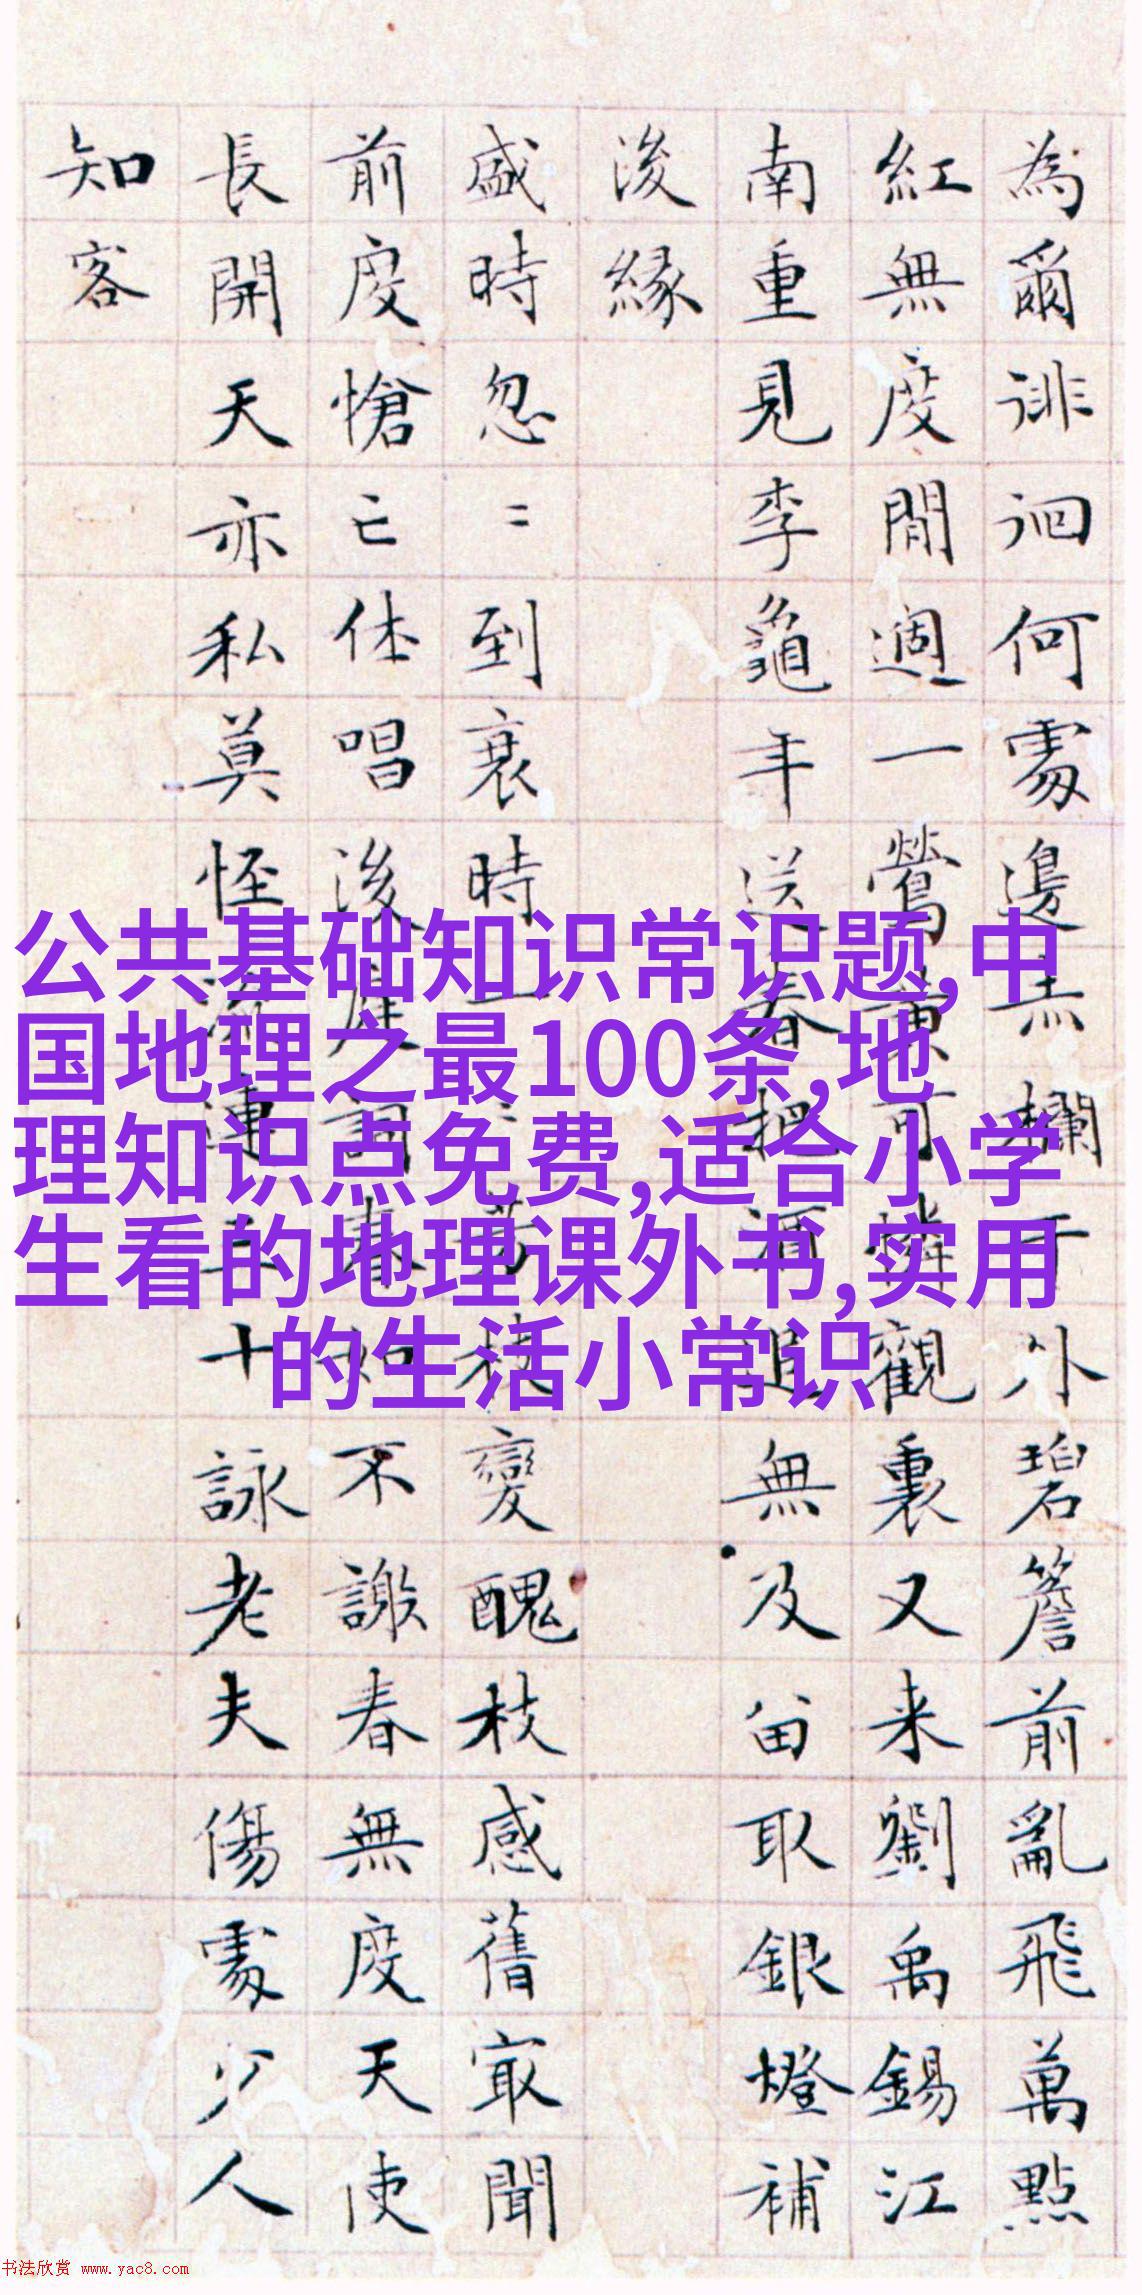 為爾徘徊何處邊赤欄干外碧簷前亂飛萬點
紅無度閒過一鶯黃可憐觀裏又来劉禹錫江
南重見李龜年送春把酒追無及留取銀燈補
後緣
盛時忽〻到衰時一〻芳枝變醜枝感舊寂聞
前度愴亡休唱後庭詞春如不謝春無度天使
長開天亦私莫怪流連三十詠老夫傷處少人
知客
公共基础知识常识题,中
国地理之最100条,地
理知识点免费,适合小学
生看的地理课外书,实用
的生活小常识
书法欣赏 www.yac8.com